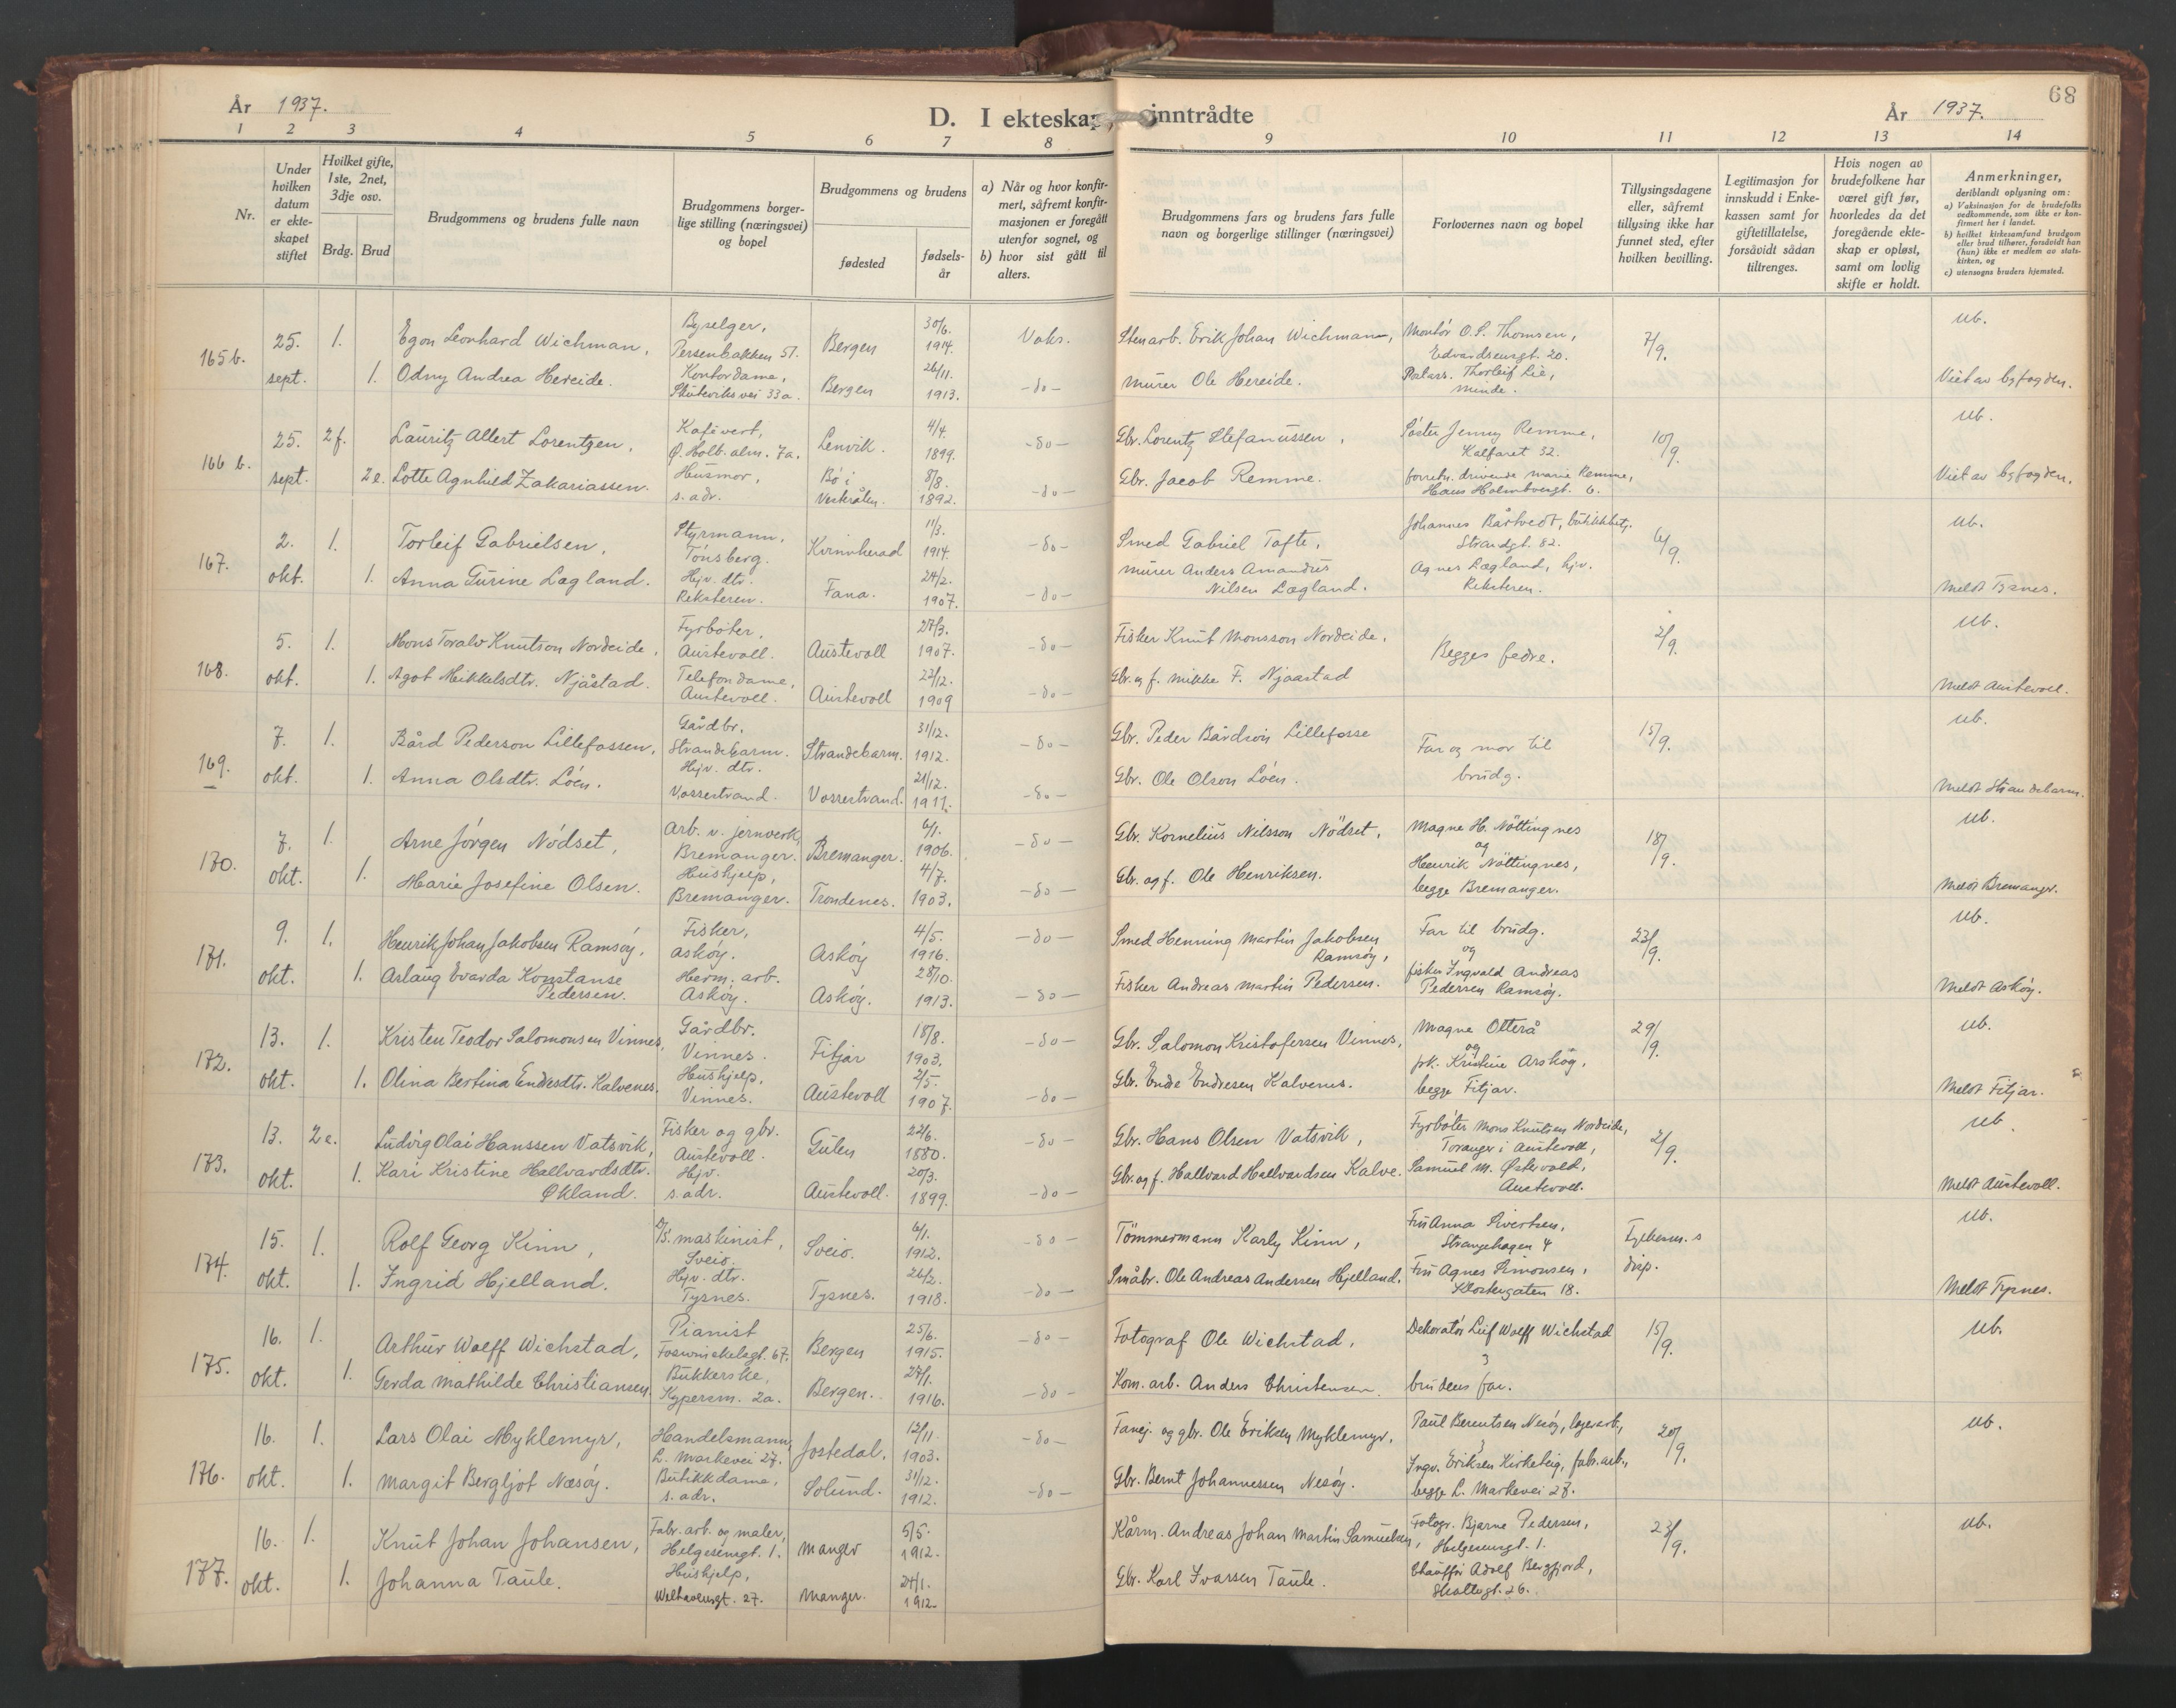 År 1937.
D. I ekteskap inntrådte
År 1937.
68
1 2 3 4 5 6 7 8 9 10 11 12 13 14
Nr.
Under hvilken datum er ekteskapet stiftet
Hvilket gifte, 1ste, 2net, 3dje osv.
Brdg. Brud
Brudgommens og brudens fulle navn
Brudgommens borgerlige stilling (næringsvei) og bopel
Brudgommens og brudens
fødested
fødselsår
a) Når og hvor konfirmert, såfremt konfirmasjonen er foregått utenfor sognet, og
b) hvor sist gått til alters.
Brudgommens fars og brudens fars fulle navn og borgerlige stillinger (næringsvei)
Forlovernes navn og bopel
Tillysingsdagene eller, såfremt tillysing ikke har funnet sted, efter hvilken bevilling.
Legitimasjon for innskudd i Enkekassen samt for giftetillatelse, forsåvidt sådan tiltrenges.
Hvis nogen av brudefolkene har været gift før, hvorledes da det foregående ekteskap er opløst, samt om lovlig skifte er holdt.
Anmerkninger,
deriblandt oplysning om:
a) Vaksinasjon for de brudefolks vedkommende, som ikke er konfirmert her i landet.
b) hvilket kirkesamfund brudgom eller brud tilhører, forsåvidt han (hun) ikke er medlem av statskirken, og
c) utensogns bruders hjemsted.
165 b. 25. sept. 1. Egon Leonhard Wichman, Byselger, Persenbakken 51. Bergen 30/6. 1914. Vaks. Stenarb. Erik Johan Wichmann, Montör O.S. Thomsen, Edvardsensgt. 20. 7/9. ub.
1. Odny Andrea Hereide. Kontordame, Skuteviksvei 33a. Bergen 26/11. 1913. -do- Murer Ole Hereide. Thorleif Lie, Minde. Viet av byfogden.
166 b. 25. sept. 2 f. Lauritz Allert Lorentzen, Kafévert, Ø. Holb. alm. 7a. Lenvik. 4/4. 1899. -do- Gbr. Lorentz Stefanussen, Söster Jenny Remme, Kalfaret 32. 10/9. ub.
2 e. Lotte Agnhild Zakariassen. Husmor, s. adr. Bö i Vesterålen. 8/8. 1892. -do- Gbr. Jacob Remme. forretn. drivende Marie Remme, Hans Holmboesgt. 6. Viet av byfogden.
167. 2. okt. 1. Torleif Gabrielsen, Styrmann, Tönsberg. Kvinnherad 11/3. 1914. -do- Smed Gabriel Tofte, Johannes Bårtvedt, butikkbetj. Strandgt. 82. 6/9. ub.
1. Anna Gurine Lægland. Hjv. dtr. Reksteren. Fana. 24/2. 1907. -do- Murer Anders Amandus Nilsen Lægland. Agnes Lægland, hjv. Reksteren. Meldt Tysnes.
168. 5. okt. 1. Mons Toralv Knutson Nordeide, Fyrböter, Austevoll. Austevoll 27/3. 1907. -do- Fisker Knut Monsson Nordeide, Begges fedre. 2/9. ub.
1. Agot Mikkelsdtr. Njåstad. Telefondame, Austevoll. Austevoll 22/12. 1909 -do- Gbr. og f. Mikke F. Njaastad Meldt Austevoll.
169. 7. okt. 1. Bård Pederson Lillefossen, Gårdbr. Strandebarm. Strandebarm. 31/12. 1912. -do- Gbr. Peder Bårdson Lillefosse Far og mor til brudg. 15/9. ub.
1. Anna Olsdtr. Löen. Hjv. dtr. Vossestrand. Vossestrand. 21/12. 1911. -do- Gbr. Ole Olson Löen. Meldt Strandebarm.
170. 7. okt. 1. Arne Jörgen Nödset, Arb. v. jernverk, Bremanger. Bremanger. 6/1. 1906. -do- Gbr. Kornelius Nilsson Nödset, Magne H. Nöttingnes og 18/9. ub.
1. Marie Josefine Olsen. Hushjelp, Bremanger. Trondenes. 4/7. 1903. -do- Gbr. og f. Ole Henriksen. Henrik Nöttingnes, begge Bremanger. Meldt Bremanger.
171. 9. okt. 1. Henrik Johan Jakobsen Ramsöy, Fisker, Asköy. Asköy 4/5. 1916. -do- Smed Henning Martin Jakobsen Ramsöy, Far til brudg. og 23/9. ub.
1. Aslaug Evarda Konstanse Pedersen. Herm. arb. Asköy. Asköy. 28/10. 1913. -do- Fisker Andreas Martin Pedersen. fisker Ingvald Andreas Pedersen Ramsöy. Meldt Asköy.
172. 13. okt. 1. Kristen Teodor Salomonsen Vinnes, Gårdbr. Vinnes. Fitjar 18/8. 1903. -do- Gbr. Salomon Kristofersen Vinnes, Magne Otterå og 29/9. ub.
1. Olina Bertina Endresdtr. Kalvenes. Hushjelp, Vinnes. Austevoll 2/5. 1907. -do- Gbr. Ende Endresen Kalvenes. frk. Kristine Arskög, begge Fitjar. Meldt Fitjar.
173. 13. okt. 2 e. Ludvig Olai Hanssen Vatsvik, Fisker og gbr. Austevoll. Gulen 22/6. 1880. -do- Gbr. Hans Olsen Vatsvik, Fyrböter Mons Knutsen Nordeide, Toranger i Austevoll, 2/9. ub.
1. Kari Kristine Hallvardsdtr. Økland. Hjv. s. adr. Austevoll. 20/3. 1899. -do- Gbr. og f. Hallvard Hallvardsen Kalve. Samuel M. Østervold, Austevoll. Meldt Austevoll.
174. 15. okt. 1. Rolf Georg Kinn, D/S. maskinist, Sveio. Sveio. 6/1. 1912. -do- Tömmermann Karly Kinn, Fru Anna Sivertsen, Strangehagen 4 Fylkesm.s disp. ub.
1. Ingrid Hjelland. Hjv. dtr. Tysnes. Tysnes. 26/2. 1918. -do- Småbr. Ole Andreas Andersen Hjelland. Fru Agnes Simonsen, Klostergaten 18. Meldt Tysnes.
175. 16. okt. 1. Arthur Wolff Wichstad, Pianist Fosswinckelsgt. 67. Bergen 25/6. 1915. -do- Fotograf Ole Wichstad, Dekoratör Leif Wolff Wichstad 15/9. ub.
1. Gerda Mathilde Christiansen. Bukkerske, Kypersm. 2a. Bergen. 27/1. 1916. -do- Kom. arb. Anders Christensen. brudens far.
176. 16. okt. 1. Lars Olai Myklemyr, Handelsmann, L. Markevei 27. Jostedal. 12/11. 1903. -do- Fanej. og gbr. Ole Eriksen Myklemyr, Paul Berentsen Nesöy, lagerarb., 20/9. ub.
1. Margit Bergljot Næsöy. Butikkdame, s. adr. Solund. 31/12. 1912. -do- Gbr. Bernt Johannessen Nesöy. Ingv. Eriksen Kirketeig, fabr. arb., begge L. Markevei 27.
177. 16. okt. 1. Knut Johan Johansen, Fabr. arb. og maler, Helgesensgt. 1. Manger 5/5. 1912. -do- Kårm. Andreas Johan Martin Samuelsen, Fotogr. Bjarne Pedersen, Helgesensgt. 1. 23/9. ub.
1. Johanna Taule. Hushjelp, Welhavensgt. 27. Manger. 24/1. 1912. Gbr. Karl Ivarsen Taule. Chaufför Adolf Bergfjord, Skoltegt. 26.